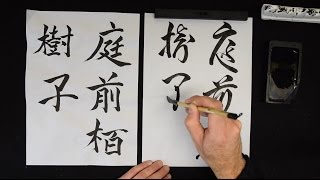 庭前柏
樹子
庭前
樹子